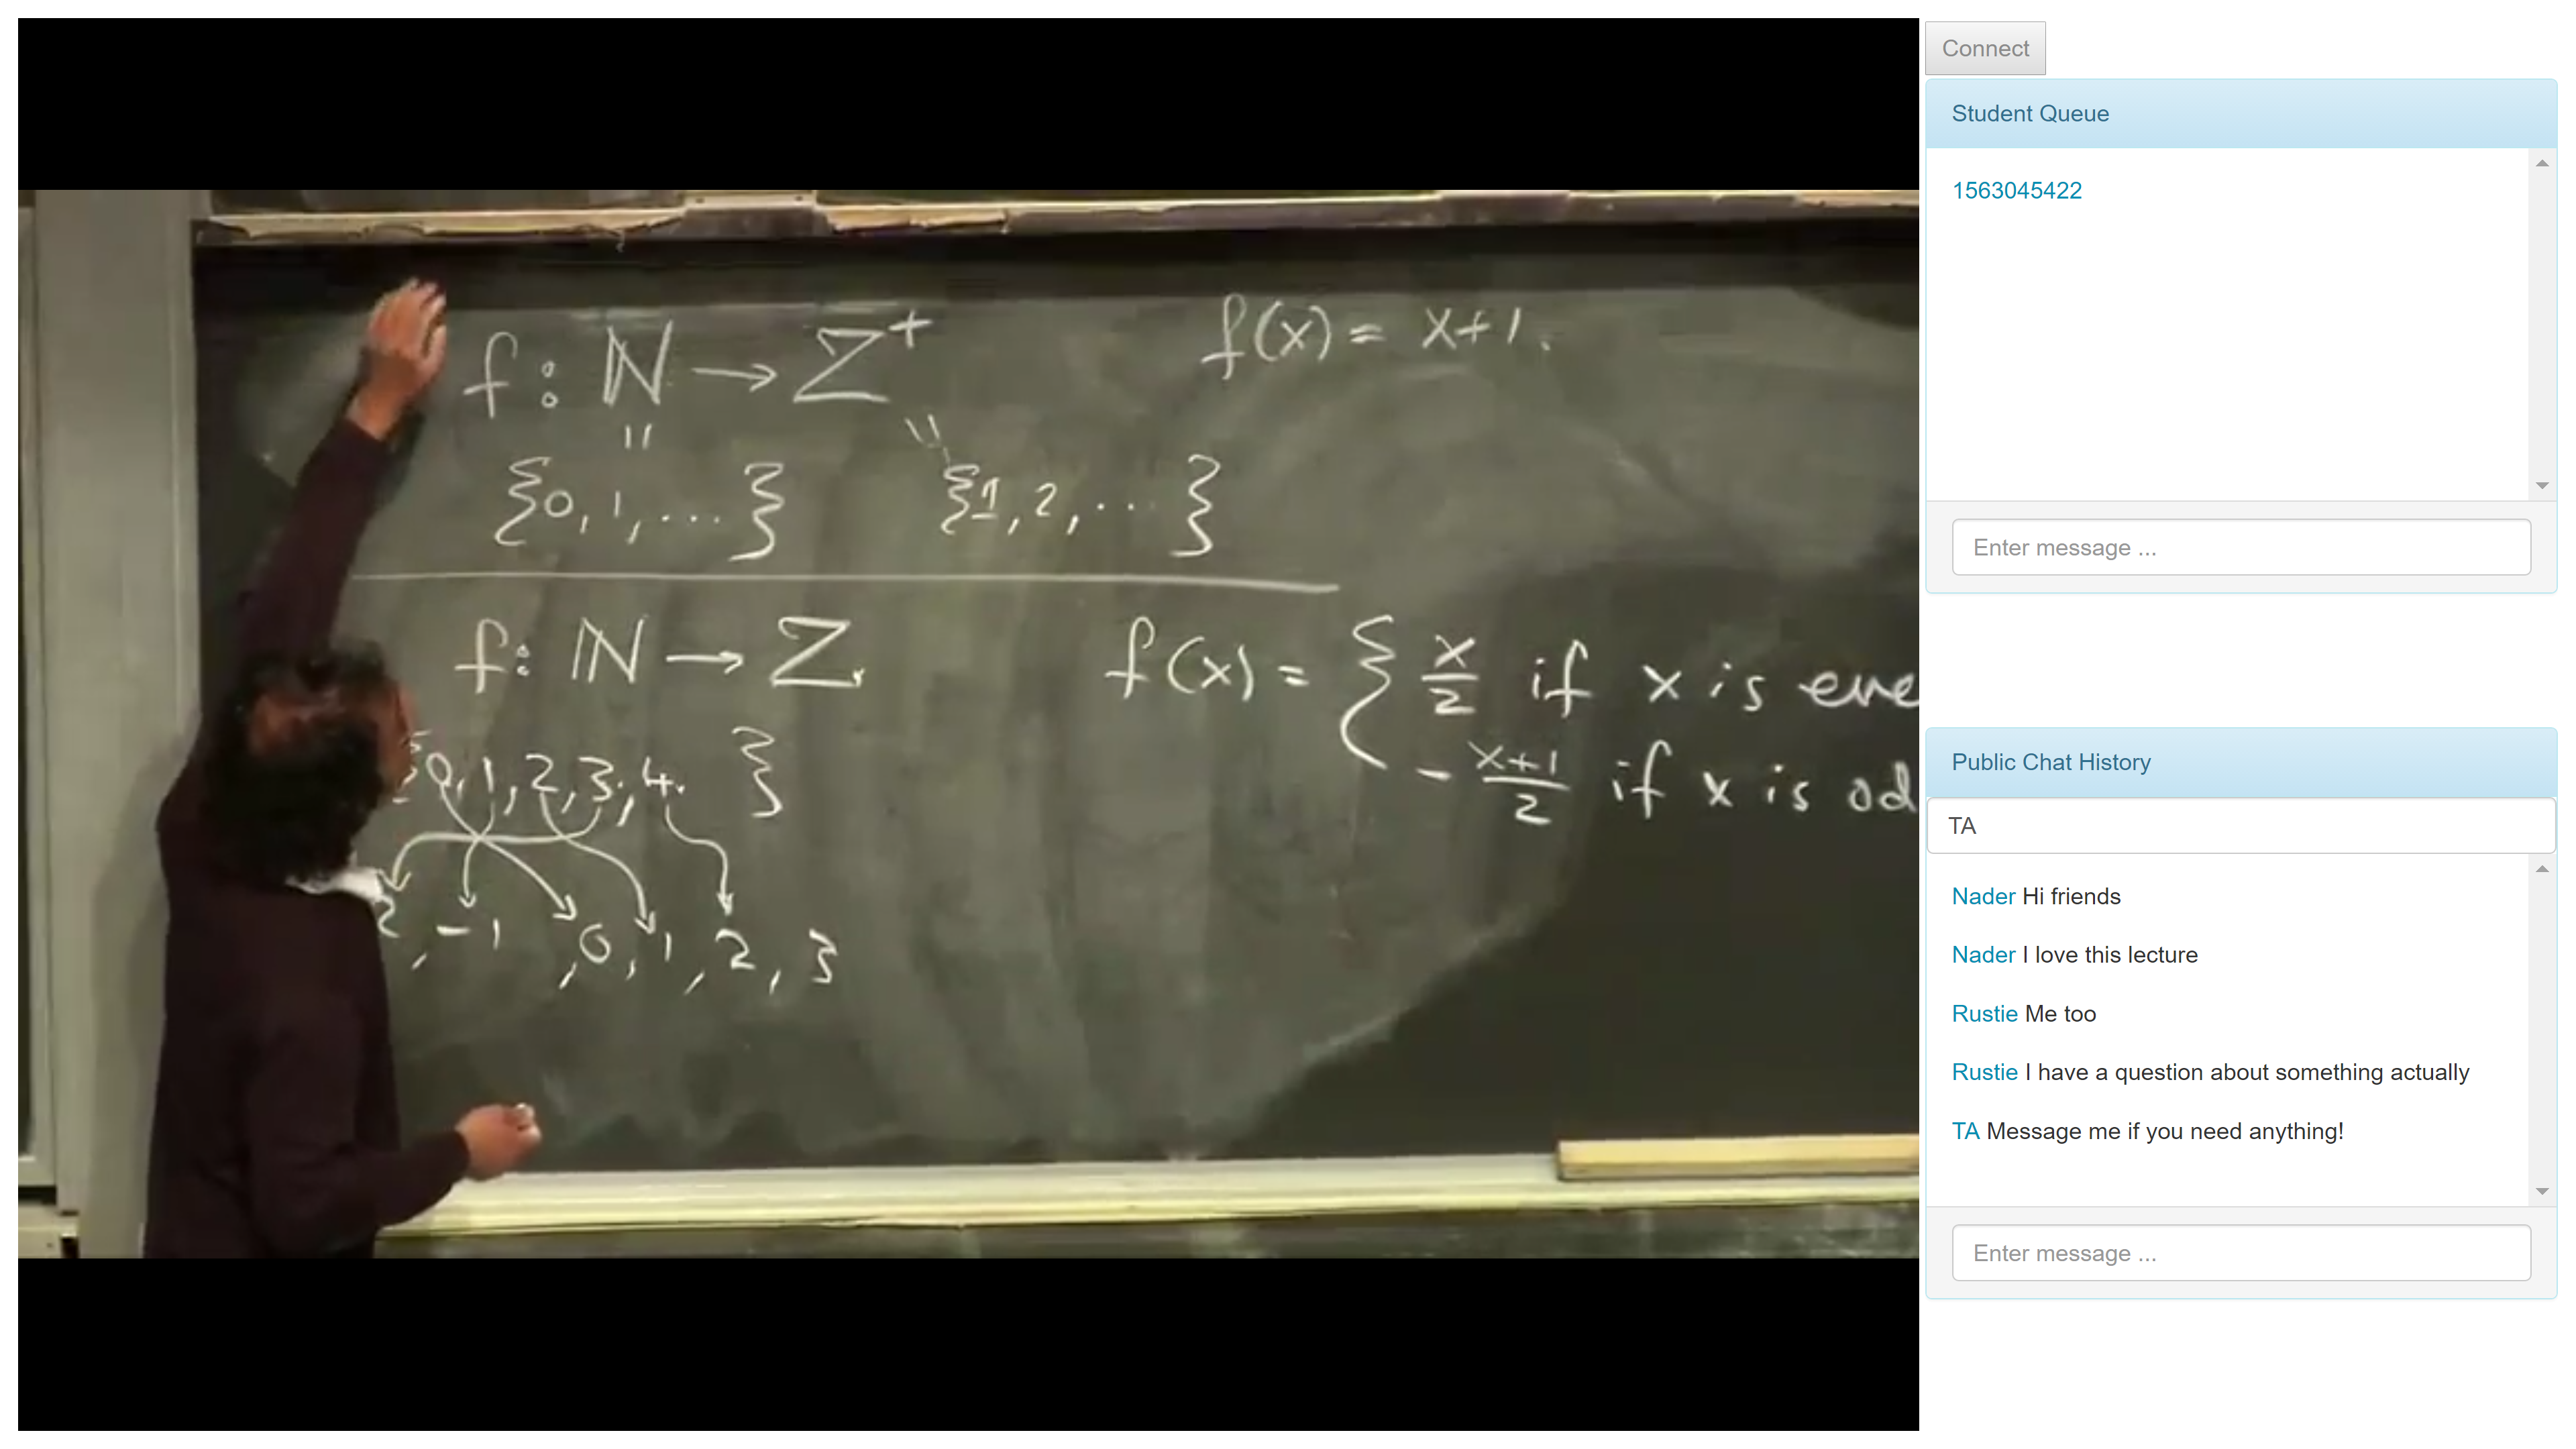 f: ℕ → ℤ⁺ f(x) = x+1.
{0, 1, ... } {1, 2, ... }
f: ℕ → ℤ f(x) = { x/2 if x is eve
- x+1/2 if x is od
{0, 1, 2, 3, 4. }
2, -1, 0, 1, 2, 3
Connect
Student Queue
1563045422
Enter message ...
Public Chat History
TA
Nader Hi friends
Nader I love this lecture
Rustie Me too
Rustie I have a question about something actually
TA Message me if you need anything!
Enter message ...